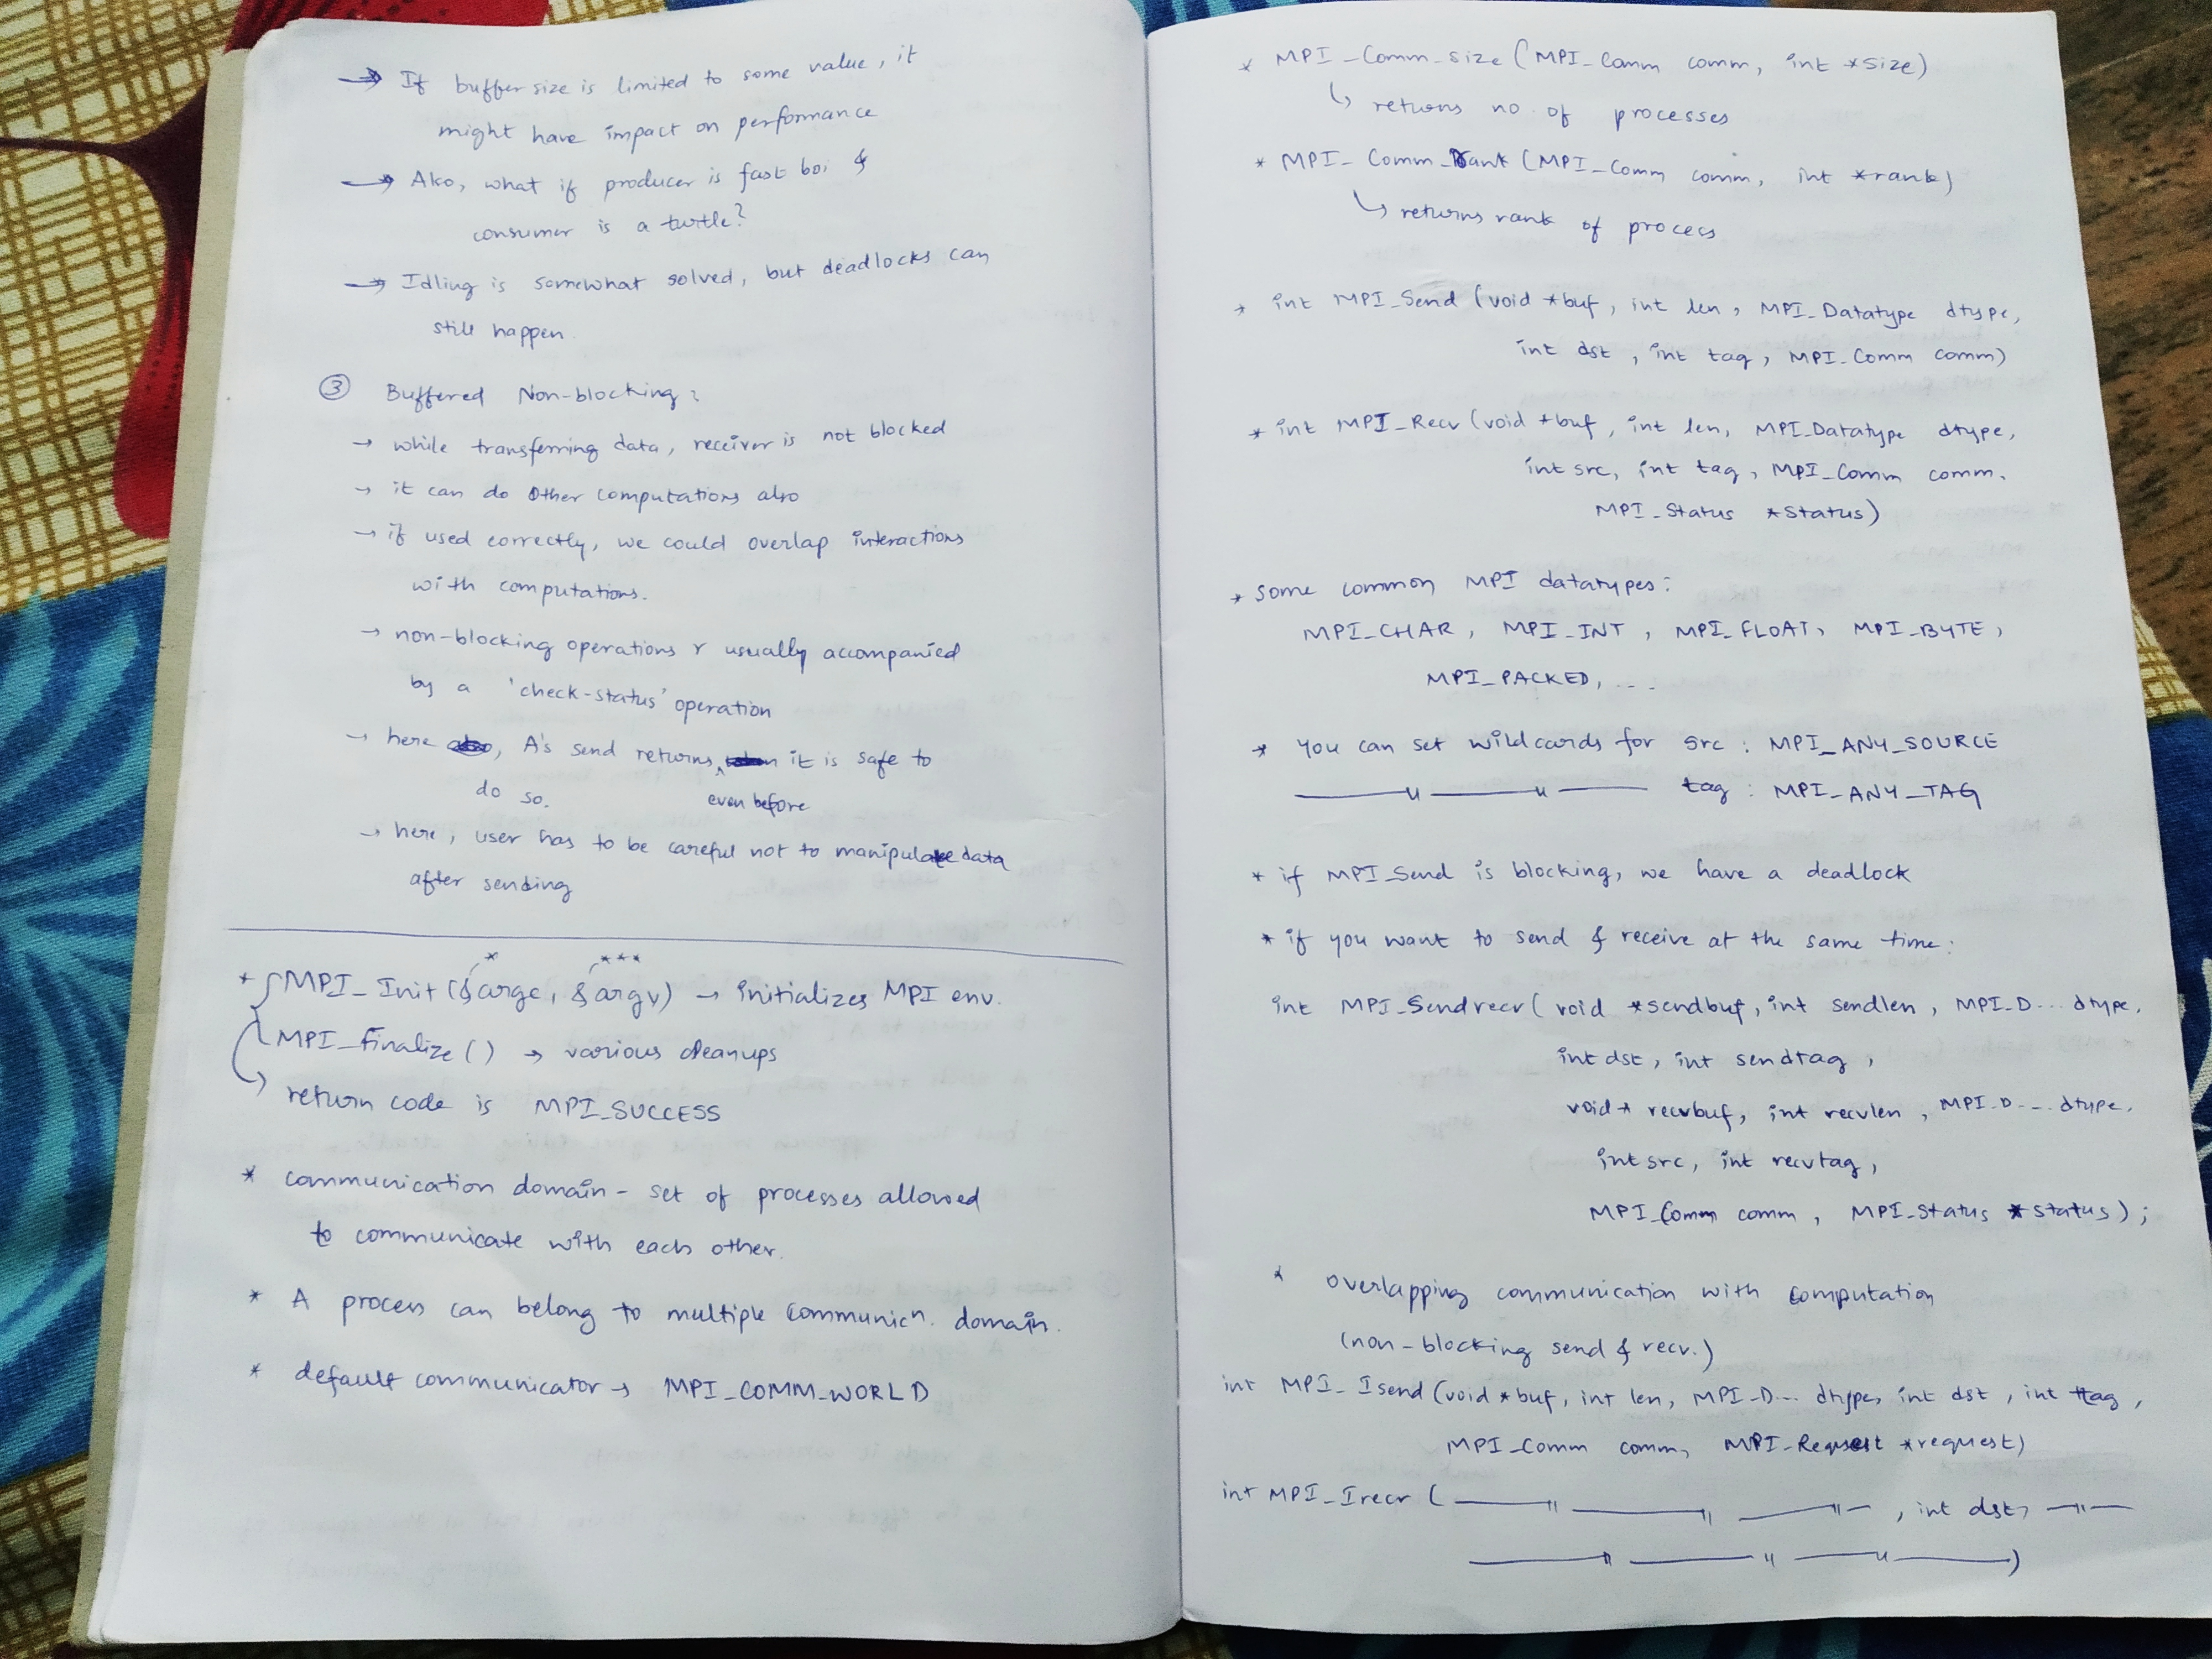 → If buffer size is limited to some value, it
might have impact on performance
→ Also, what if producer is fast boi &
consumer is a turtle?
→ Idling is somewhat solved, but deadlocks can
still happen.
③ Buffered Non-blocking:
→ while transferring data, receiver is not blocked
→ it can do other computations also
→ if used correctly, we could overlap interactions
with computations.
→ non-blocking operations r usually accompanied
by a 'check-status' operation
→ here, A's send returns even before it is safe to
do so.
→ here, user has to be careful not to manipulate data
after sending
* MPI_Init(&argc, &argv) → initializes MPI env.
* ***
MPI_Finalize() → various cleanups
return code is MPI_SUCCESS
* communication domain - set of processes allowed
to communicate with each other.
* A process can belong to multiple communicn. domain.
* default communicator → MPI_COMM_WORLD
* MPI_Comm_size (MPI_Comm comm, int *size)
↳ returns no. of processes
* MPI_Comm_Rank (MPI_Comm comm, int *rank)
↳ returns rank of process
* int MPI_Send (void *buf, int len, MPI_Datatype dtype,
int dst, int tag, MPI_Comm comm)
* int MPI_Recv (void *buf, int len, MPI_Datatype dtype,
int src, int tag, MPI_Comm comm,
MPI_Status *status)
* some common MPI datatypes:
MPI_CHAR, MPI_INT, MPI_FLOAT, MPI_BYTE,
MPI_PACKED, ...
* you can set wildcards for src : MPI_ANY_SOURCE
—"—"— tag : MPI_ANY_TAG
* if MPI_Send is blocking, we have a deadlock
* if you want to send & receive at the same time:
int MPI_Sendrecv( void *sendbuf, int sendlen, MPI_D... dtype,
int dst, int sendtag,
void* recvbuf, int recvlen, MPI_D... dtype,
int src, int recvtag,
MPI_Comm comm, MPI_Status *status);
* overlapping communication with computation
(non-blocking send & recv.)
int MPI_Isend (void *buf, int len, MPI_D... dtype, int dst, int tag,
MPI_Comm comm, MPI_Request *request)
int MPI_Irecv ( —"—"—"—, int dst, —"—
—"—"—"—)